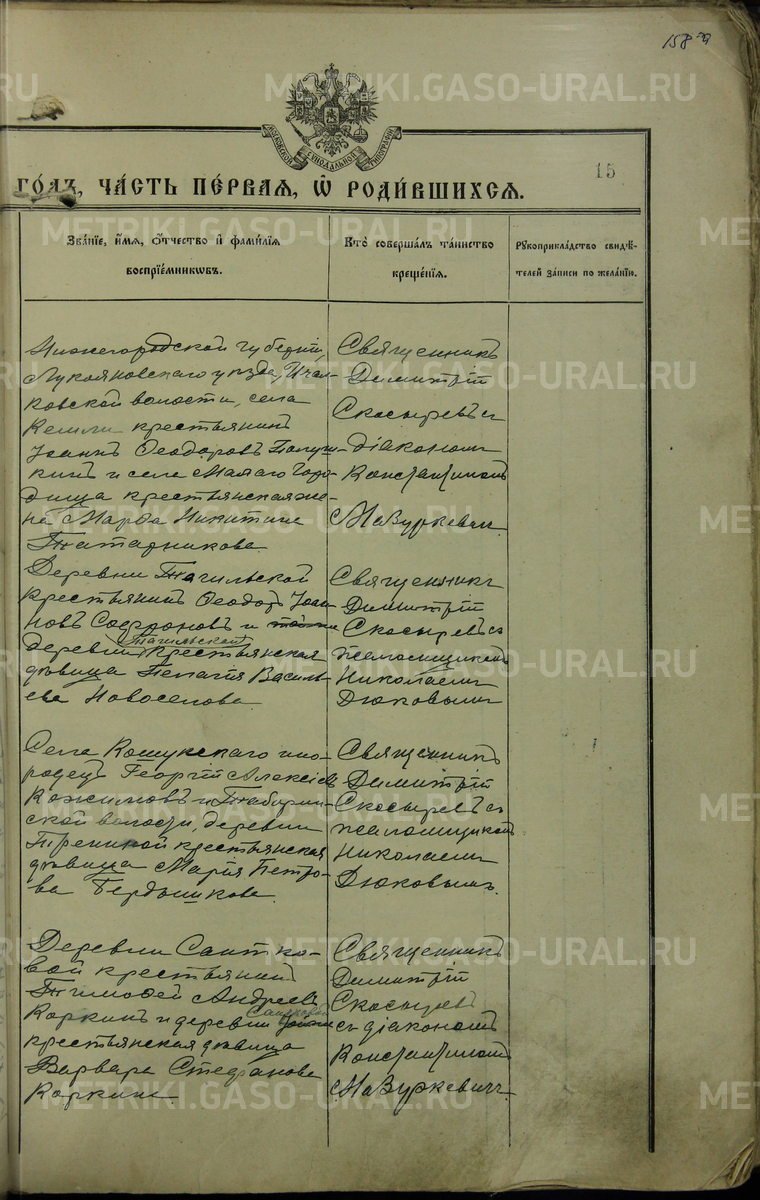 158 об
МОСКОВСКОЙ СѴНОДАЛЬНОЙ ТИПОГРАФІИ
15
ГО́ДЪ, ЧА́СТЬ ПЕ́РВАЯ, Ѿ РОДИ́ВШИХСЯ.
Зва́нїе, и҆́мя, ѻ҆́тчество и҆ фами́лїя
воспрїе́мникѡвъ.
Кто̀ соверша́лъ та́инство
креще́нїя.
Рꙋкоприкла́дство свидѣ́-
телей за́писи по жела́нїю.
Нижегородской губерніи,
Лукояновскаго уѣзда, Ичал-
ковской волости, села
Кемли крестьянинъ
Іоаннъ Ѳеодоровъ
кинъ и села Малаго Горо-
дища крестьянская же-
на Марѳа Никитина
Татарникова.
Священникъ
Димитрій
Скосыревъ съ
діакономъ
Константиномъ
Мазуркевич.
Деревни Тагильской
крестьянинъ Ѳеодоръ Іоан-
новъ Софроновъ и той же
деревни Тагильской крестьянская
дѣвица Пелагія Василь-
ева Новоселова.
Священникъ
Димитрій
Скосыревъ съ
псаломщикомъ
Николаемъ
Дюковымъ
Села Кошукскаго ино-
родецъ Георгій Алексіевъ
Кожимовъ и Табарин-
ской волости, деревни
крестьянская
дѣвица Марія Петро-
ва Бердышкова.
Священникъ
Димитрій
Скосыревъ съ
псаломщикомъ
Николаемъ
Дюковымъ.
Деревни Саитко-
вой крестьянинъ
Тимоѳей Андреевъ
Коркинъ и деревни Саитковой
крестьянская дѣвица
Варвара Стефанова
Коркина.
Священникъ
Димитрій
Скосыревъ
съ діакономъ
Константиномъ
Мазуркевич.
METRIKI.GASO-URAL.RU